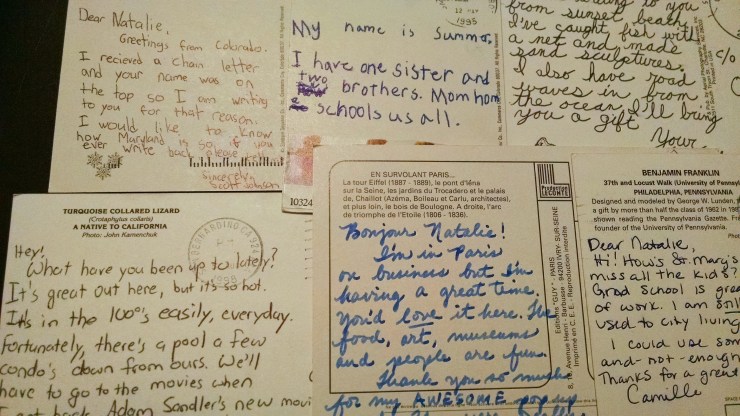 Dear Natalie,
Greetings from Colorado.
I recieved a chain letter
and your name was on
the top so I am writing
to you for that reason.
I would like to know
how Maryland is so if you
ever write back please
Sincerely,
Scott Johnson
12
1995
My name is Summer,
I have one sister and
two brothers. Mom hom
schools us all.
10324
from sunset beach,
I've caught fish with
a net and made
sand sculptures.
I also have road
waves in from
the ocean. I'll bring
you a gift
Your
c/o
TURQUOISE COLLARED LIZARD
(Crotaphytus collaris)
A NATIVE TO CALIFORNIA
Photo: John Kamenchuk
Hey!
What have you been up to lately?
It's great out here, but it's so hot.
It's in the 100°s easily, everyday.
Fortunately, there's a pool a few
condo's down from ours. We'll
have to go to the movies when
I get back. Adam Sandler's new movi
EN SURVOLANT PARIS...
La tour Eiffel (1887 - 1889), le pont d'Iéna
sur la Seine, les jardins du Trocadero et le palais
de, Chaillot (Azéma, Boileau et Carlu, architectes),
et plus loin, le bois de Boulogne. A droite, l'arc
de triomphe de l'Etoile (1806 - 1836).
LECONTE
Editions "GUY" - PARIS
8, 10, Avenue Henri - Barbusse - 94200 IVRY-SUR-SEINE
Imprimé en C. E. E. - Reproduction interdite
Bonjour Natalie!
I'm in Paris
on business but I'm
having a great time.
You'd love it here. The
food, art, museums
and people are fun.
Thank you so much
for my AWESOME pop up
BENJAMIN FRANKLIN
37th and Locust Walk (University of Pennsyl
PHILADELPHIA, PENNSYLVANIA
Designed and modeled by George W. Lundeen,
a gift by more than half the class of 1962 in 198
shown reading the Pennsylvania Gazette. Fra
founder of the University of Pennsylvania.
Phot
Dear Natalie,
Hi! How's St. mary's
miss all the kids?
Grad School is grea
of work. I am still
used to city living
I could use som
and-not-enough
Thanks for a great
Camille